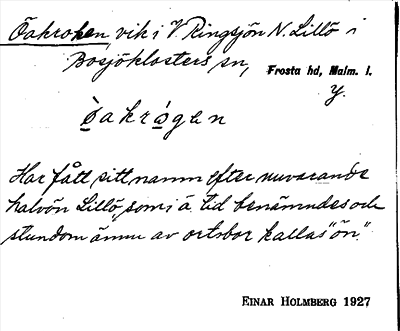 Öakroken, vik i V Ringsjön N. Lillö i
Bosjöklosters sn, Frosta hd, Malm. l.
Y.
Öakrógen
Har fått sitt namn efter nuvarande
halvön Lillö, som i ä. tid benämndes och
stundom ännu av ortsbor kallas "ön".
EINAR HOLMBERG 1927